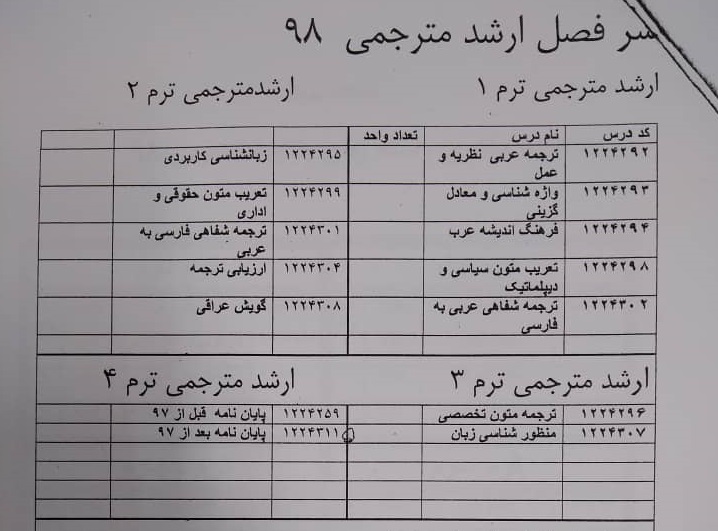 سر فصل ارشد مترجمی ۹۸
ارشد مترجمی ترم ۱
ارشدمترجمی ترم ۲
کد درس نام درس تعداد واحد
۱۲۲۴۲۹۲ ترجمه عربی نظریه و عمل ۱۲۲۴۲۹۵ زبانشناسی کاربردی
۱۲۲۴۲۹۳ واژه شناسی و معادل گزینی ۱۲۲۴۲۹۹ تعریب متون حقوقی و اداری
۱۲۲۴۲۹۴ فرهنگ اندیشه عرب ۱۲۲۴۳۰۱ ترجمه شفاهی فارسی به عربی
۱۲۲۴۲۹۸ تعریب متون سیاسی و دیپلماتیک ۱۲۲۴۳۰۴ ارزیابی ترجمه
۱۲۲۴۳۰۲ ترجمه شفاهی عربی به فارسی ۱۲۲۴۳۰۸ گویش عراقی
ارشد مترجمی ترم ۳
ارشد مترجمی ترم ۴
۱۲۲۴۲۹۶ ترجمه متون تخصصی ۱۲۲۴۲۵۹ پایان نامه قبل از ۹۷
۱۲۲۴۳۰۷ منظور شناسی زبان ۱۲۲۴۳۱۱ پایان نامه بعد از ۹۷